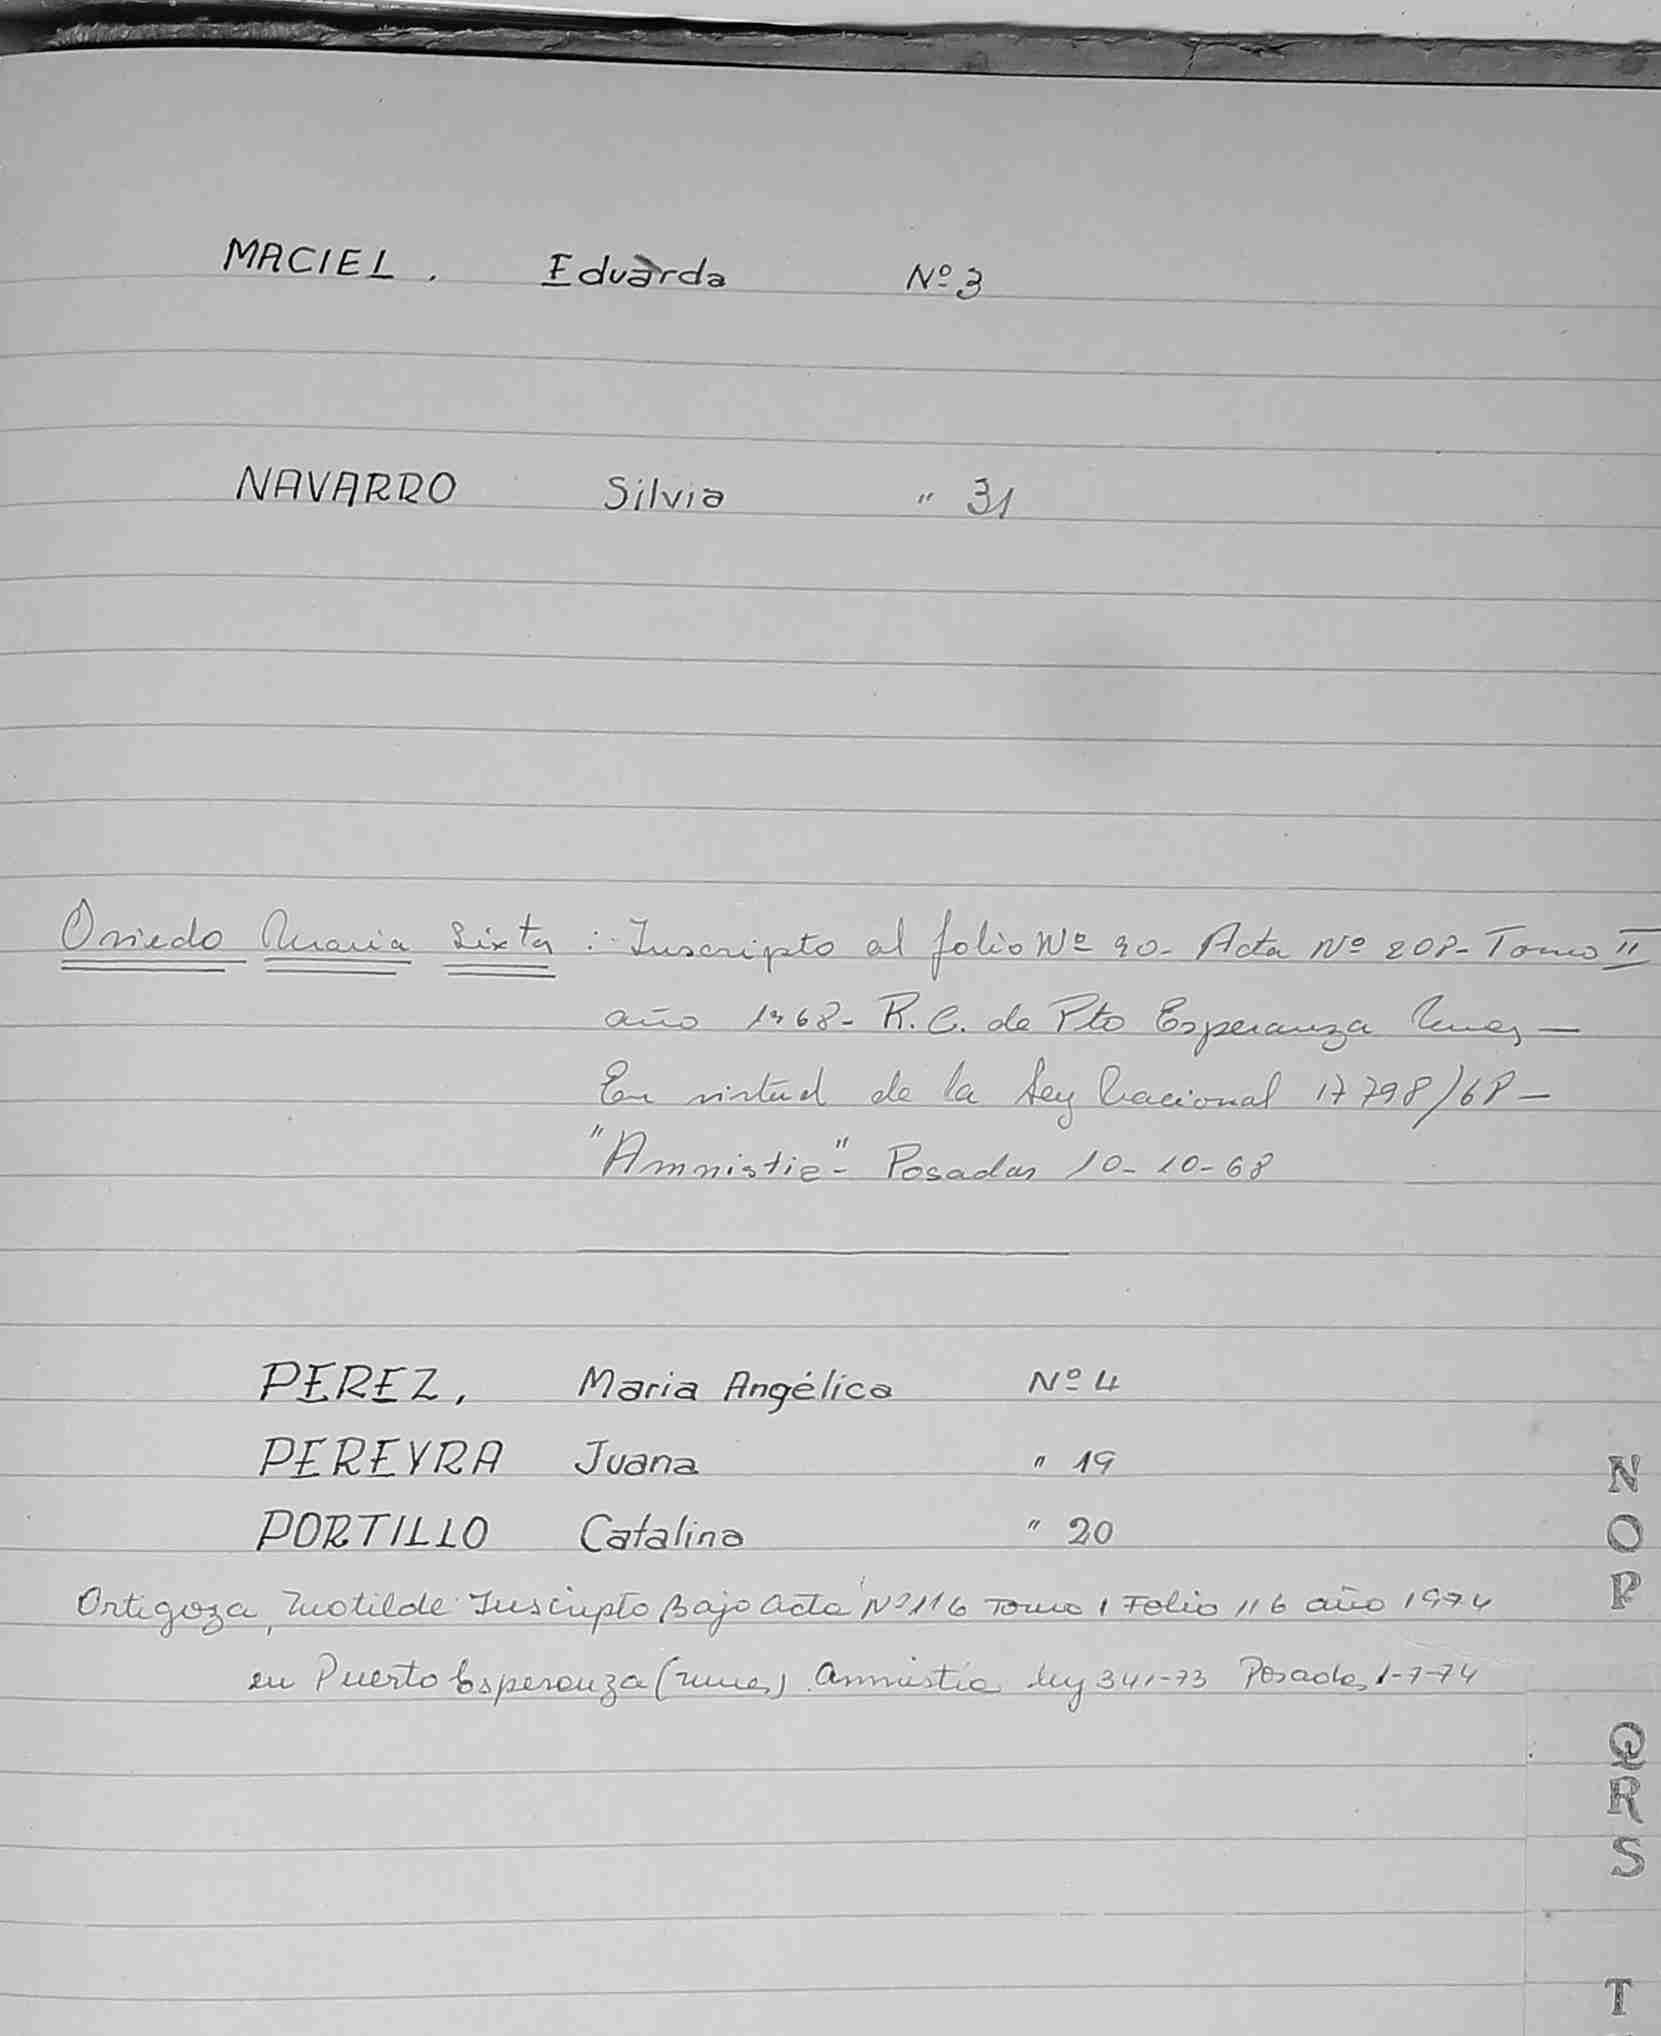 MACIEL. Eduarda Nº 3
NAVARRO Silvia " 31
Oviedo Maria Sixta: Inscripto al folio Nº 90- Acta Nº 208- Tomo II
año 1968- R.C. de Pto Esperanza Mnes —
En virtud de la Ley Nacional 17798/68 —
"Amnistia"- Posadas 10-10-68
PEREZ, Maria Angélica Nº 4
PEREYRA Juana " 19
PORTILLO Catalina " 20
Ortigoza, Matilde Inscripto Bajo acta Nº 116 Tomo 1 Folio 116 año 1974
en Puerto Esperanza (mnes) amnistia ley 341-73 Posadas 1-7-74
N
O
P
Q
R
S
T